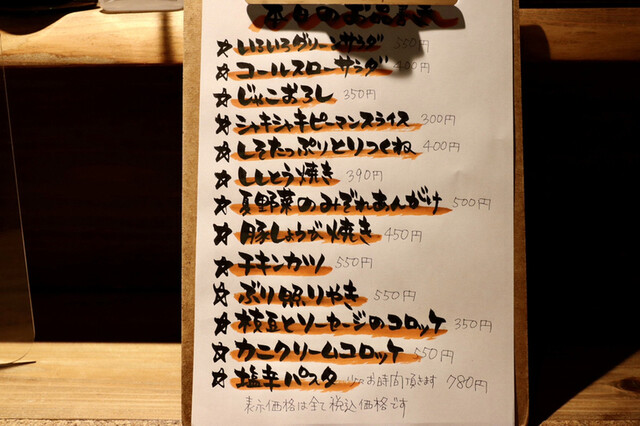 本日のおすすめ
☆いろいろグリーンサラダ 550円
☆コールスローサラダ 400円
☆じゃこおろし 350円
☆シャキシャキピーマンスライス 300円
☆しそたっぷりとりつくね 400円
☆ししとう焼き 390円
☆夏野菜のみぞれあんがけ 500円
☆豚しょうが焼き 450円
☆チキンカツ 550円
☆ぶり照りやき 550円
☆枝豆とソーセージのコロッケ 350円
☆カニクリームコロッケ 550円
☆塩辛パスタ お時間頂きます 780円
表示価格は全て税込価格です